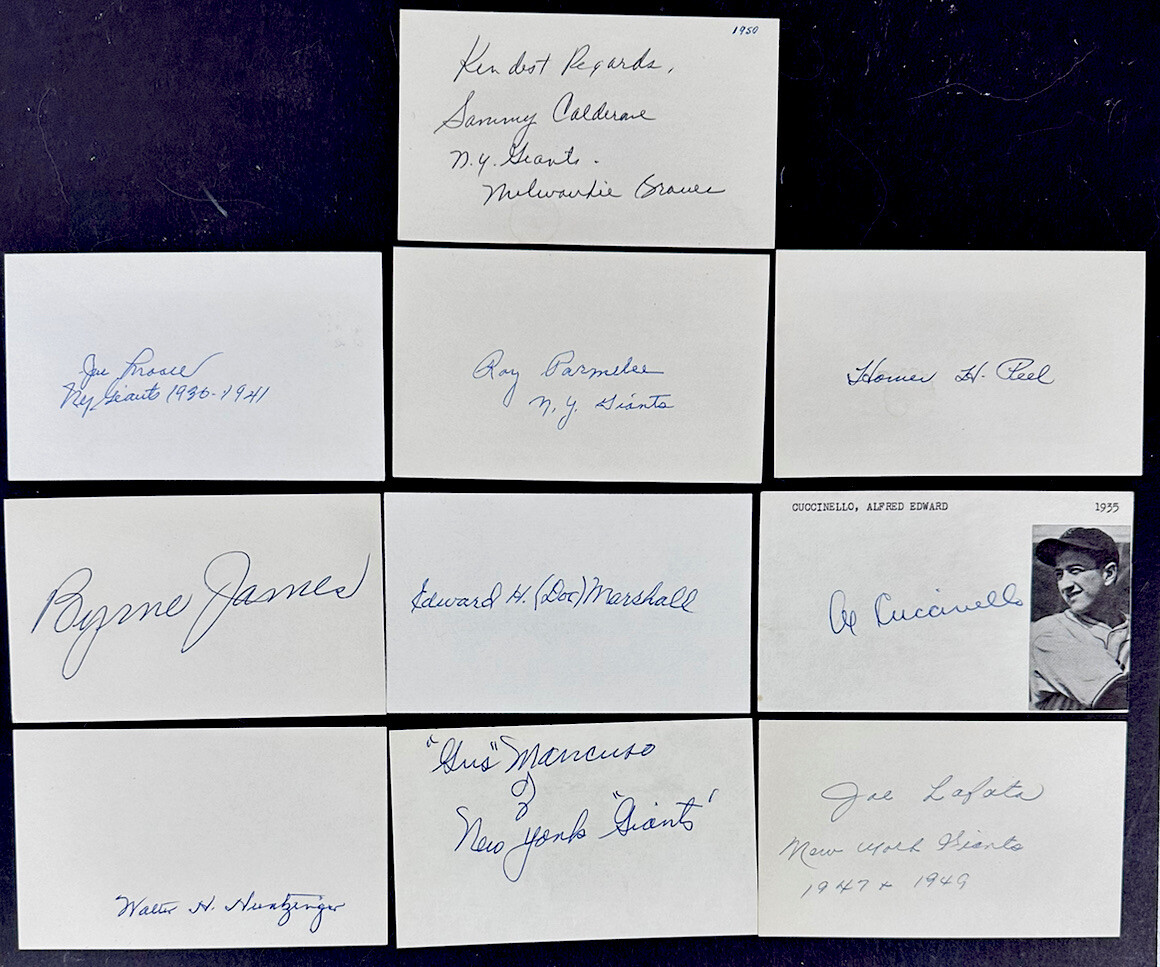 1950
Kindest Regards,
Sammy Calderone
N.Y. Giants.
Milwaukie Braves
Joe Moore
NY Giants 1930-1941
Roy Parmelee
N.Y. Giants
Homer H. Peel
Byrne James
Edward H. (Doc) Marshall
CUCCINELLO, ALFRED EDWARD 1935
Al Cuccinello
Walter H. Huntzinger
"Gus" Mancuso
New York "Giants"
Joe Lafata
New York Giants
1947 + 1949